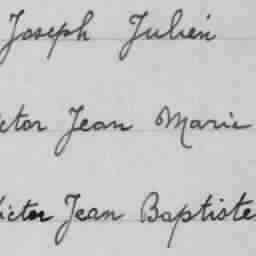 Joseph Julien
ctor Jean Marie
Victor Jean Baptiste